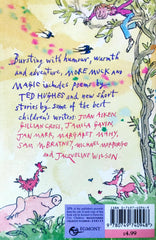 Bursting with humour, warmth
and adventure, MORE MUCK AND
MAGIC includes poems by
TED HUGHES and new short
stories by some of the best
children's writers: JOAN AIKEN,
GILLIAN CROSS, JAMILA GAVIN,
JAN MARK, MARGARET MAHY,
SAM McBRATNEY, MICHAEL MORPURGO
and JACQUELINE WILSON
EGMONT
£4.99